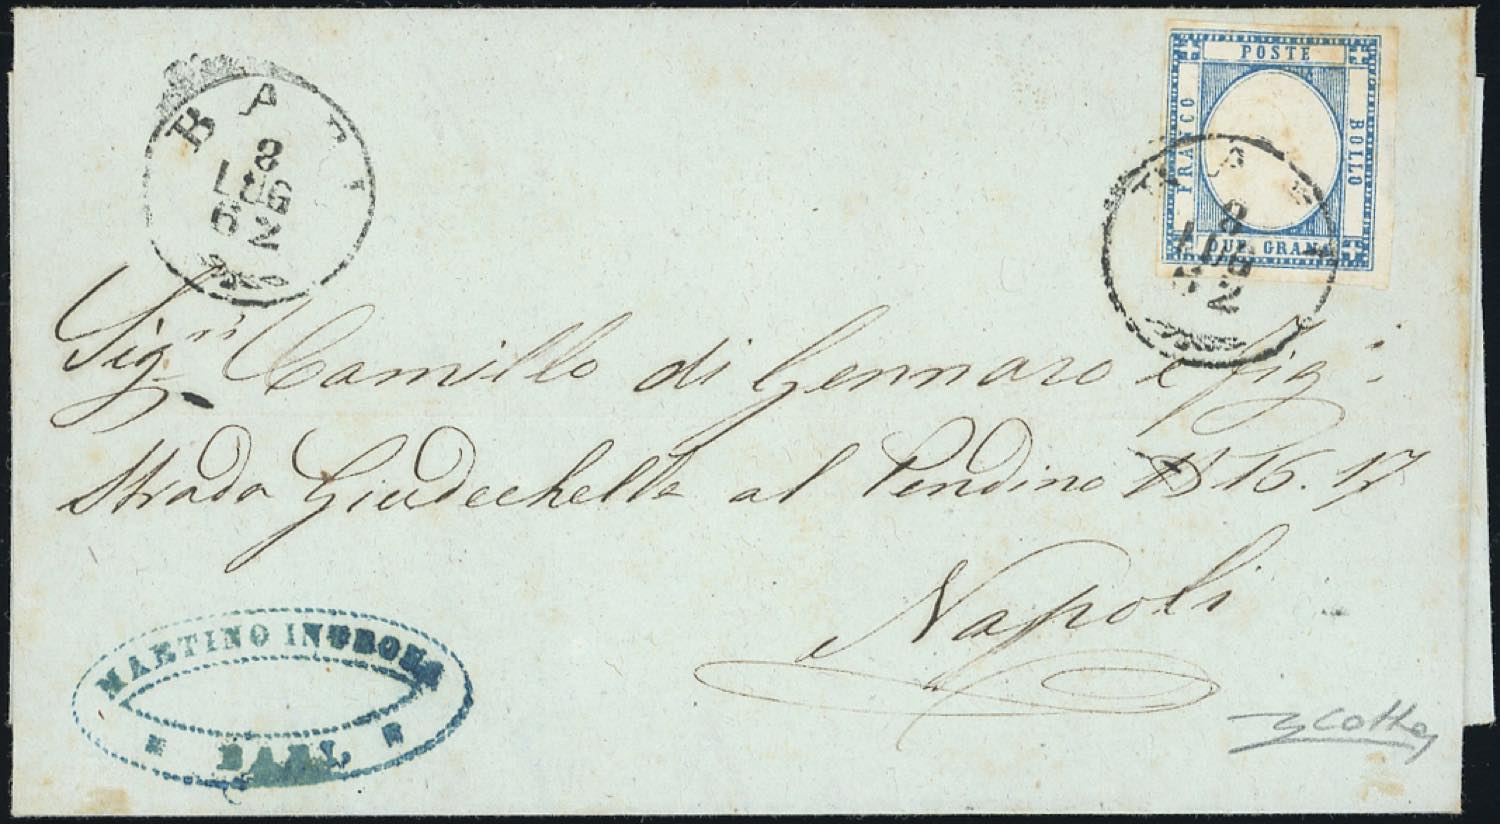 BARI
8
LUG
62
POSTE
FRANCO
BOLLO
DUE GRANA
BARI
8
LUG
62
Sigri Camillo di Gennaro e figi
Strada Giudechella al Pendino 15 16. 17
Napoli
MARTINO
BARI